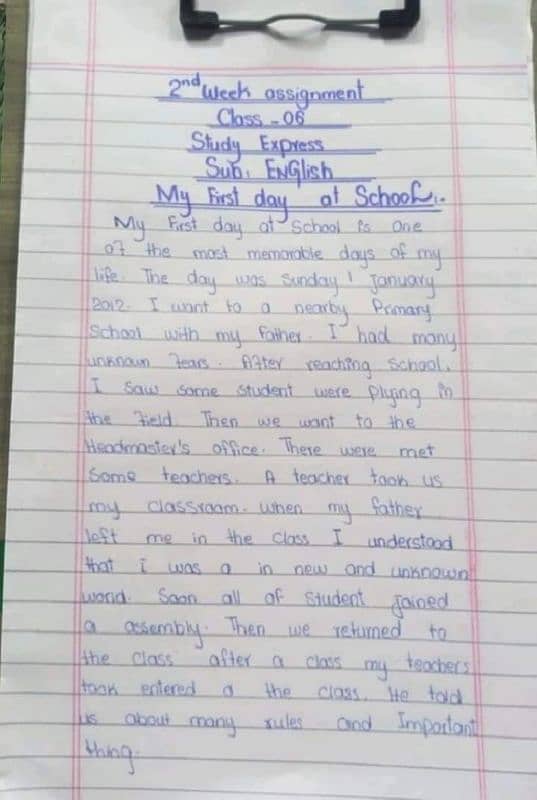 2nd Week assignment
Class - 06
Study Express
Sub: ENglish
My First day at School..
My First day at School is one
of the most memorable days of my
life. The day was Sunday 1 January
2012. I want to a nearby Primary
School with my father. I had many
unknown fears. After reaching School.
I saw some student were Plying in
the field. Then we want to the
Headmaster's office. There were met
Some teachers. A teacher took us
my classroom. when my father
left me in the class I understood
that i was a in new and unknown
world. Soon all of student joined
a assembly. Then we returned to
the class after a class my teachers
took entered a the class. He told
us about many rules and Important
thing.